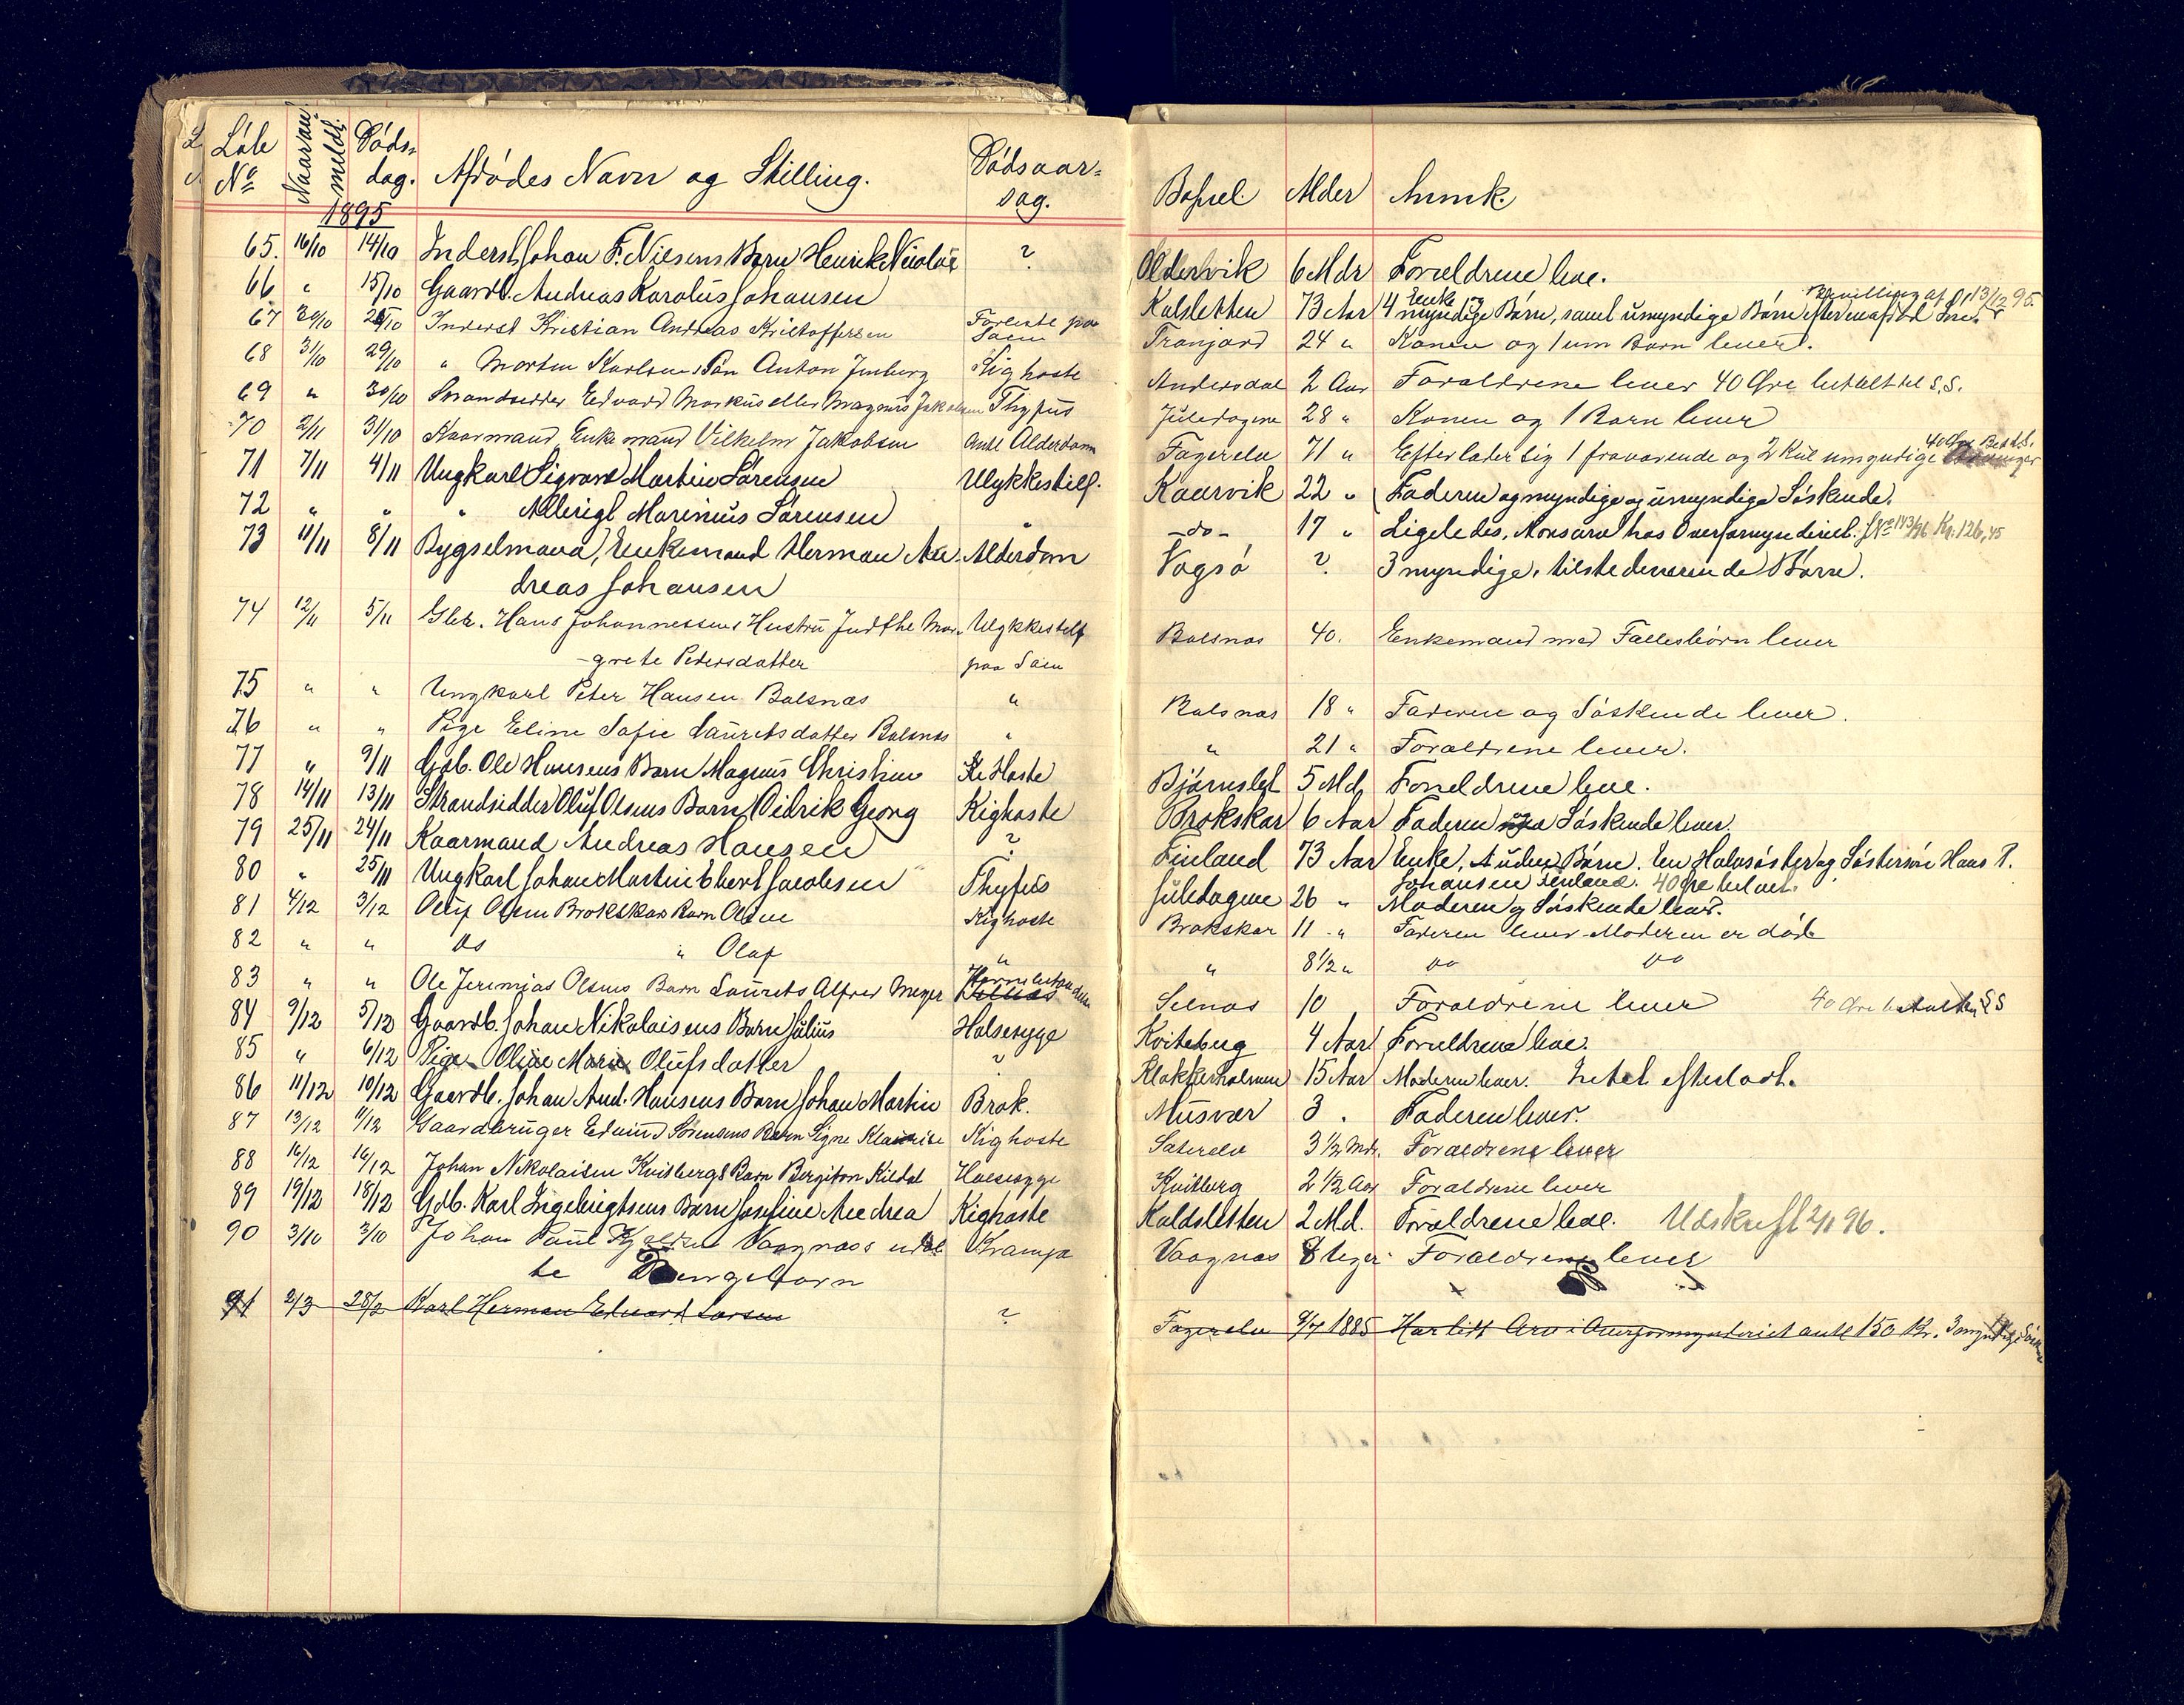 Löbe No Naar anmeldt. Döds- dag. Afdödes Navn og Stilling. Dödsaar- sag.
Bopæl. Alder Anmk.
1895
65. 16/10 14/10 Inderst Johan F. Nilsens Barn Henrik Nicolai ? Oldervik 6 Mdr Forældrene leve.
66 " 15/10 Gaardb. Andreas Karolus Johansen Kalsletten 73 Aar Enke og 4 myndige Börn, samt umyndige Börn efter en afdød
Bevilling af 13/12 95.
67 30/10 25/10 Inderst Kristian Andreas Kristoffersen Forliste paa Søen Tranjord 24 " Konen og 1 um Barn lever.
68 31/10 29/10 " Morten Karlsens Sön Anton Kighoste Andersdal 2 Aar Forældrene lever 40 Öre betalt til S.S.
69 " 30/10 Strandsidder Edvard Markus eller Magnus Jakobsen Thyfus Juledagene 28 " Konen og 1 Barn lever
70 2/11 31/10 Kaarmand, Enkemand Vilhelm Jakobsen Antl Alderdom Fagerelv 71 " Efterlader sig 1 fraværende og 2 Kul umyndige
40 Öre
71 7/11 4/11 Ungkarl Sigvard Martin Sörensen Ulykkestilf. Kaarvik 22 " Faderen og myndige og umyndige Söskende.
72 " " " Marinius Sörensen " -do- 17 " Ligeledes. hos Overformynderiet. No 143/96 Kr. 126,45
73 11/11 8/11 Bygselmand, Enkemand Herman An- Alderdom Vogsö ? 3 myndige, tilstedeværende Börn.
dreas Johansen
74 12/11 5/11 Gbr. Hans Johannessens Hustru Judthe Mar- Ulykkestilf Balsnæs 40. Enkemand med Fællesbörn lever
-grete Pedersdatter paa Søen
75 " " Ungkarl Peter Hansen Balsnæs " Balsnæs 18 " Faderen og Söskende lever.
76 " " Pige Eline Sofie Lauritsdatter Balsnæs " " 21 " Forældrene lever.
77 " 9/11 Gdb. Ole Hansens Barn Magnus Christian Ki Hoste Bjørnslet 5 Md. Forældrene leve.
78 14/11 13/11 Strandsidder Oluf Olsens Barn Didrik Georg Kighoste Brokskar 6 Aar Faderen og Söskende lever.
79 25/11 24/11 Kaarmand Andreas Hansen ? Finland 73 Aar Enke, Börn. En Halvsöster og Söstersön Hans P.
Johansen Finland. 40 Öre betalt.
80 " 25/11 Ungkarl Johan Martin Ebert Jacobsen Thyfus Juledagene 26 " Moderen og Söskende lever.
81 4/12 3/12 Oluf Olsen Brokskar Barn Oline Kighoste Brokskar 11 " Faderen lever Moderen er död
82 " " do " Olaf " " 8 1/2 " do do
83 " " Ole Jeremias Olsens Barn Laurits Alfred Meyer Selnæs 10 Forældrene lever 40 Öre betalt til SS
84 9/12 5/12 Gaardb. Johan Nikolaisens Barn Julius Halsesyge Kviteberg 4 Aar Forældrene leve.
85 " 6/12 Pige Oline Marie Olufsdatter ? Klokkerholmen 15 Aar Moderen lever. Intet efterladt.
86 11/12 10/12 Gaardb. Johan And. Hansens Barn Johan Martin Brok. Musvær 3 " Faderen lever.
87 13/12 11/12 Gaardbruger Edvind Sörensens Barn Signe Kighoste Saterelv 3 1/2 Mdr. Forældrene lever
88 16/12 16/12 Johan Nikolaisen Kvitbergs Barn Bergiton Kildal Halsesyge Kvitberg 2 1/2 Aar Forældrene lever
89 19/12 18/12 Gdb. Karl Ingebrigtsens Barn Josefine Andrea Kighoste Kaldsletten 2 Md. Forældrene leve. Udskrift 2/1 96.
90 3/10 3/10 Johan Paul Vaagnæs Krampe Vaagnæs 8 Uger Forældrene lever
te Drengebarn
91 2/3 28/2 Karl Herman Edvard Larsen ? Fagerelv 9/7 1885 Har lidt Arv i Overformynderiet antl 150 Kr. 3 myndige